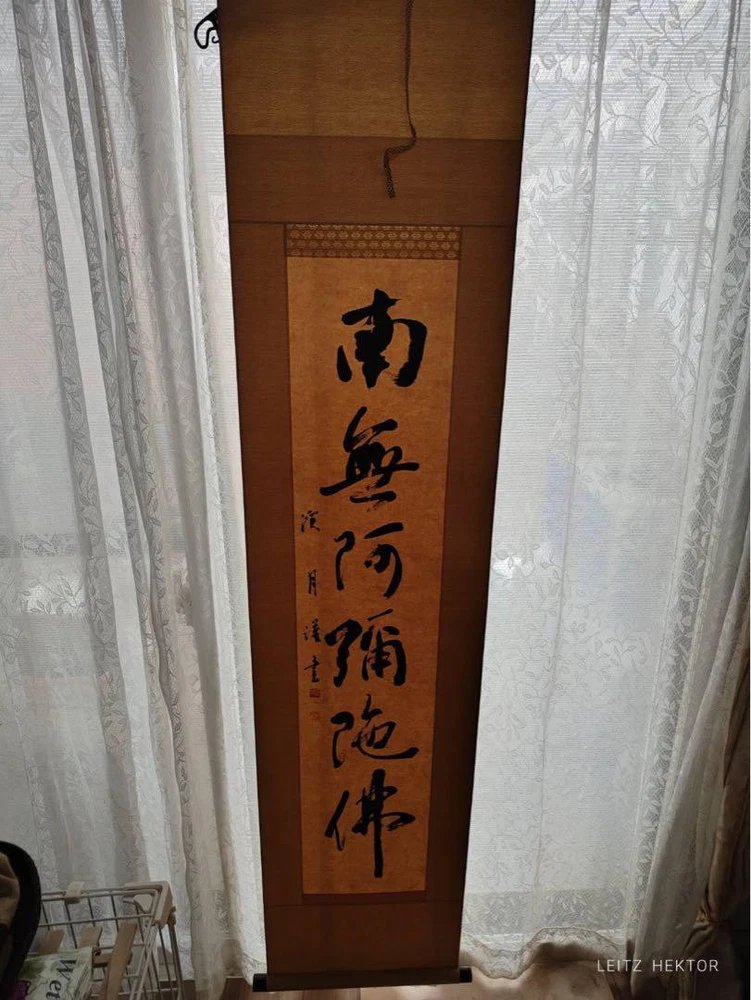 南無阿彌陀佛
月謹書
Wet
LEITZ HEKTOR